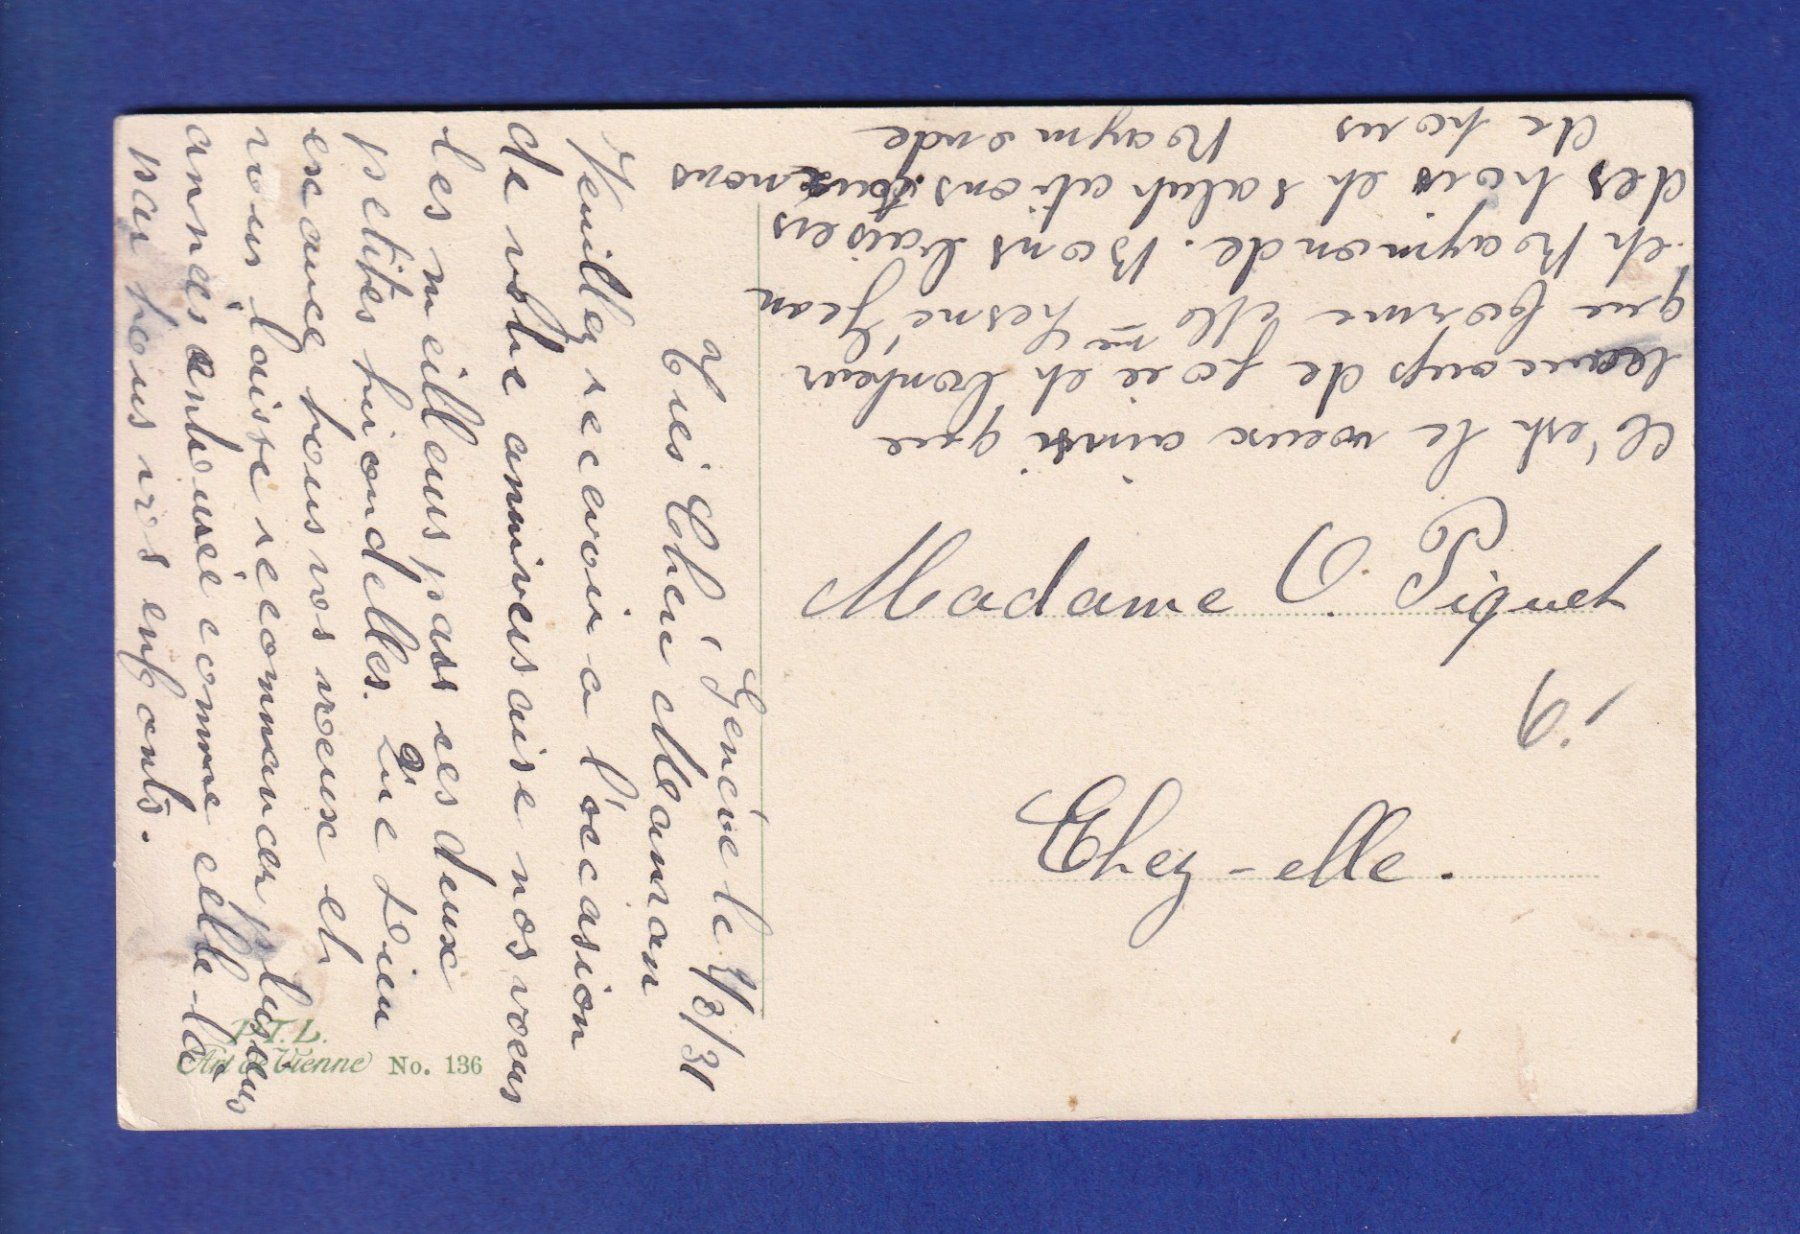 Genève le 2/3/31
Très Chère Maman
Veuillez recevoir a l'occasion
de votre anniversaire nos voeux
les meilleurs par ses deux
petites hirondelles. Que Dieu
exauce tous vos voeux et
vous laisse recommencer plusieurs
années entourée comme elle-la
par tous vos enfants.
C'est le voeux ainsi que
beaucoup de joie et bonheur
que forme Jean
et Raymonde. Bons baisers
des trois et salutations nous
de tous Raymonde
Madame O. Piguet
Chez-elle.
P.T.L.
Art de Vienne No. 136